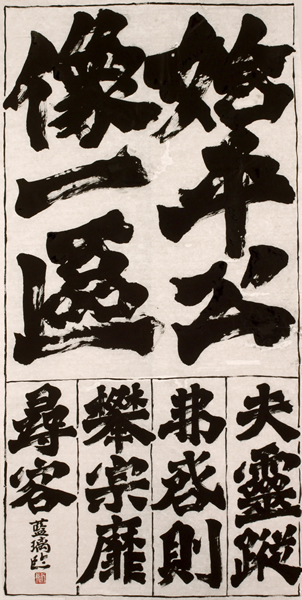 始平公
像一區
夫靈蹤
弗啓則
攀宗靡
尋容
藍瑀臨